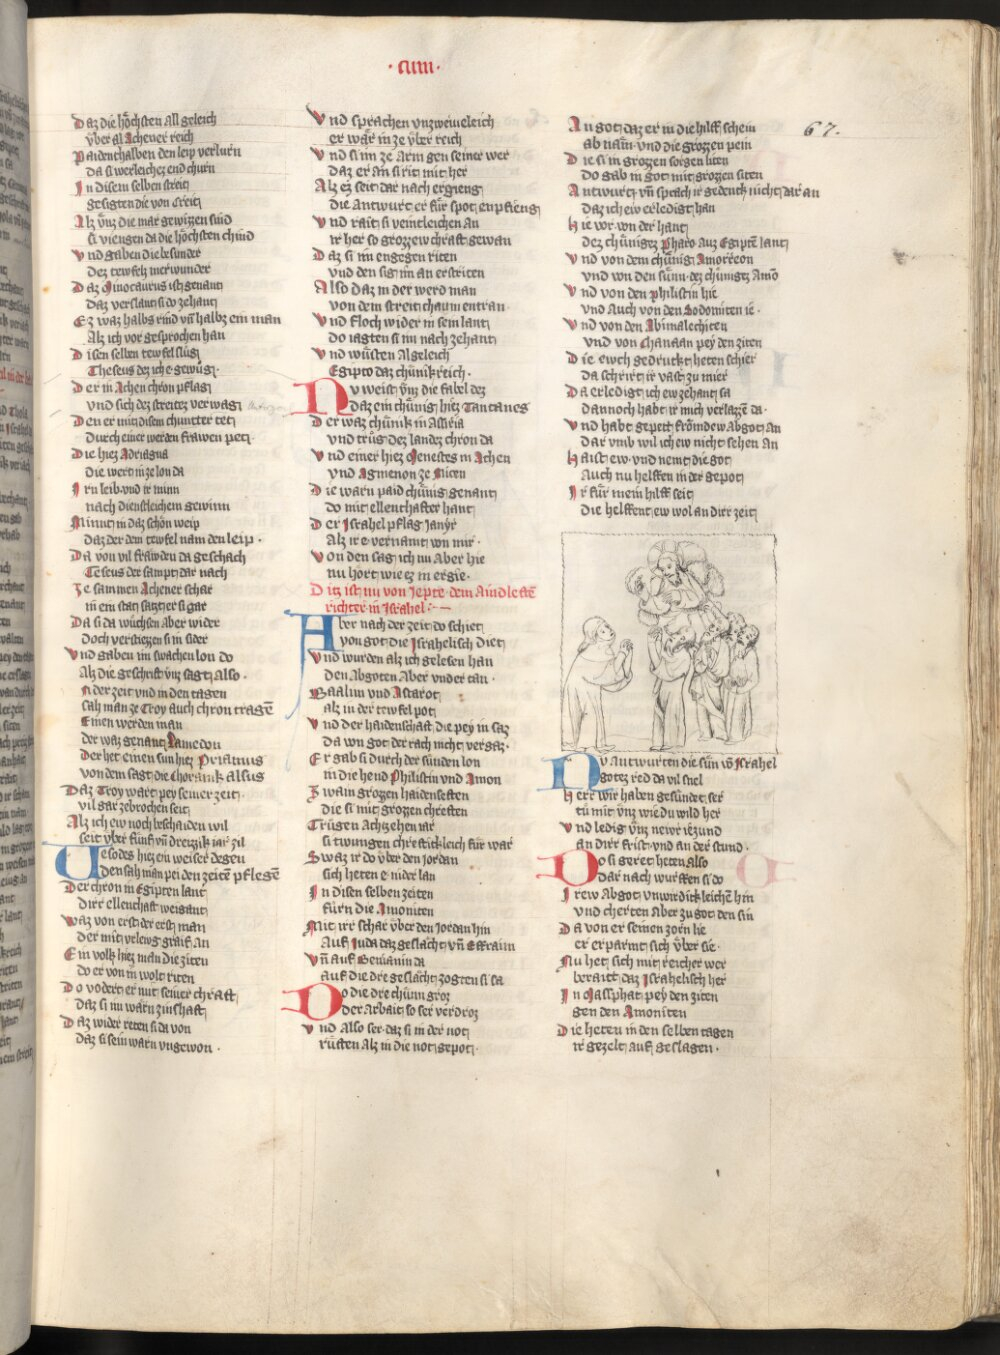 · cum ·
67.
Daz die höchsten all geleich
vber al Achener reich
Paidenthalben den leip verlurn
da si werleichez end churn
In disem selben streit
gesigten die von Creit
Alz vnz die mar gewizzen sind
si viengen da die höchsten chind
Vnd gaben die besunder
dez tewfelz merwunder
Daz Minotaurus ist genant
daz verslant si do zehant
Ez waz halbs rind vn halbz ein man
Alz ich vor gesprochen han
Disen selben tewfel slug
Theseus dez ich e gewug
Der in Achen chron pflag
vnd sich dez streitez verwag
Den er mit disem chunter tet
durch einer werden frawen pet
Die hiez Adriagna
die wert in ze lon da
Irn leib vnd ir minn
nach dienstleichem gewinn
Minnt in daz schön weip
daz der dem tewfel nam den leip ·
Da von vil fräwden da geschach
Teseus der sampt dar nach
Ze sammen Achener schar
in ein stat satzt er si gar
Da si da wüchsen aber wider
doch verstiezzen si in sider
Vnd gaben im swachen lon do
Alz die geschrift vnz sagt also ·
In der zeit vnd in den tagen
sah man ze Troy auch chron tragē
Einen werden man
der waz genant Lamedon
Der het einen sun hiez Priamus
von dem sagt die Choranik alsus
Daz Troy wart pey seiner zeit ·
vil gar zebrochen seit
Alz ich ew noch beschaiden wil
seit vber fünf vn dreizzik iar zil
Tesodes hiez ein weiser degen
den sah man pei den zeitē pflegē
Der chron in Egipten lant
dirr ellenthaft weigant
Waz von erst der erst man
der mit vrlewg graif an
Ein volk hiez man die ziten
do er von in wolt riten
Do vodert er mit seiner chraft
daz si im warn zinshaft
Daz wider reten si da von
daz si sein warn vngewon ·
Vnd sprachen vnzweiueleich
er wär in ze vber reich
Vnd si im ze arm gen seiner wer
daz er an si rit mit her
Alz ez seit dar nach ergieng
die Antwurt er für spot enpfieng
Vnd rait si veintleichen an
ir her so grozzew chraft gewan
Daz si im engegen riten
vnd den sig im an erstriten
Also daz in der werd man
von dem streit chaum entran ·
Vnd floch wider in sein lant
do iagten si im nach zehant
Vnd wüsten Algeleich
Egipto daz chünikreich ·
Nv weist vnz die fabel dez
daz ein chünig hiez Tantanes
Der waz chünik in Assiria
vnd trüg dez landez chron da
Vnd einer hiez Menestes in Achen
vnd Agmenon ze Micen
Die warn paid chünig genant
do mit ellenthafter hant
Der Israhel pflag Janyr
Alz ir e vernamt von mir ·
Von den sag ich nu Aber hie
nu hört wie ez in ergie ·
Ditz ist nu von Jepte dem Aindleftē
richter in Israhel :·—
Aber nach der zeit do schiet
von got die Israhelisch diet
Vnd wurden alz ich gelesen han
den Abgoten Aber vnder tan ·
Baalim vnd Astarot
alz in der tewfel pot
Vnd der haidenschaft die pey in saz
da von got der rach nicht vergaz ·
Er gab si durch der sünden lon
in die hend Philistin vnd Amon
Zwain grozzen haidenscheften
die si mit grozzen chreften
Trügen Achtzehen iar
si twungen chreftichleich für war
Swaz ir do vber den Jordan
sich heten e nider lan
In disen selben zeiten
fürn die Amoniten
Mit irr schar vber den Jordan hin
Auf Juda daz geslächt vn Effraim
Vn auf Beniamin da
auf die dre geslächt zogten si sa
Do die dre chünn groz
der arbait so ser verdroz
Vnd Also ser daz si in der not
rüften Alz in die not gepot
An got daz er in die hilff schein
ab näm vnd die grozzen pein
Die si in grozzen sorgen liten
do gab in got mit grozzen siten
Antwurt vn sprach ir gedenkt nicht dar an
daz ich ew erledigt han
Hie vor von der hant
dez chünigez Pharo auz Egiptē lant
Vnd von dem chünig Amorreon
vnd von den sünn dez chünigz Amō
Vnd von den philistin hie
vnd Auch von den Sodomiten ie ·
Vnd von den Abimalechiten
vnd von Chanaan pey den ziten
Die ewch gedrukt heten schier
da schrirt ir vast zu mier
Da erledigt ich ew zehant sa
dannoch habt ir mich verlazzē da ·
Vnd habt gepett frömdew abgot an
dar vmb wil ich ew nicht sehen an
Haizt ew vnd nemt die got
Auch nu helffen in der gepot
Ir für mein hilff seit
die helffent ew wol an dirr zeit
Do Antwurten die sün vō Israhel
gotz red da vil snel
Herr wir haben gesündet ser
tü mit vnz wie du wild her
Vnd ledig vnz newr iezund
an dirr frist vnd an der stund ·
Do si geret heten also
dar nach wurffen si do
Irew Abgot vnwirdichleichē hin
vnd cherten Aber zu got den sin
Da von er seinen zorn lie
er erparmt sich vber sie ·
Nu het sich mit reicher wer
berait daz Israhelisch her
In Massphat pey den ziten
gen den Amoniten
Die heten in den selben tagen
ir gezelt auf geslagen ·